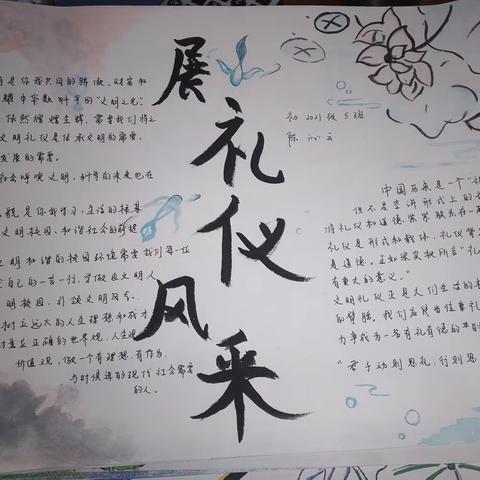 展礼仪风采
初2021级5班
陈沁云
明是你我共同的骄傲、财富和
耀中华数千年的“文明之光”
依然熠熠生辉,需要我们将之
文明礼仪是传承文明的需要,
发展的需要。
社会呼唤文明,科学的未来也在
就是你我学习、生活的根基
文明校园、和谐社会的
文明和谐的校园环境需要我们每一位
自己的一言一行,争做良文明人
明校园,引领文明风尚。
树立远大的人生理想和成才
树立正确的世界观、人生观
价值观,做一个有理想、有作为、
与时俱进的现代社会需要
的人。
中国历来是一个“礼
但不是空讲形式上的
将礼仪和道德常常联系在一
礼仪是形式和载体,礼仪背
是道德。正如宋奕所言“礼
有重大的意义。”
文明礼仪正是人们生活的
的臂膀。我们应该当注重礼
力争成为一名有礼有德的
“君子动则思礼,行则思